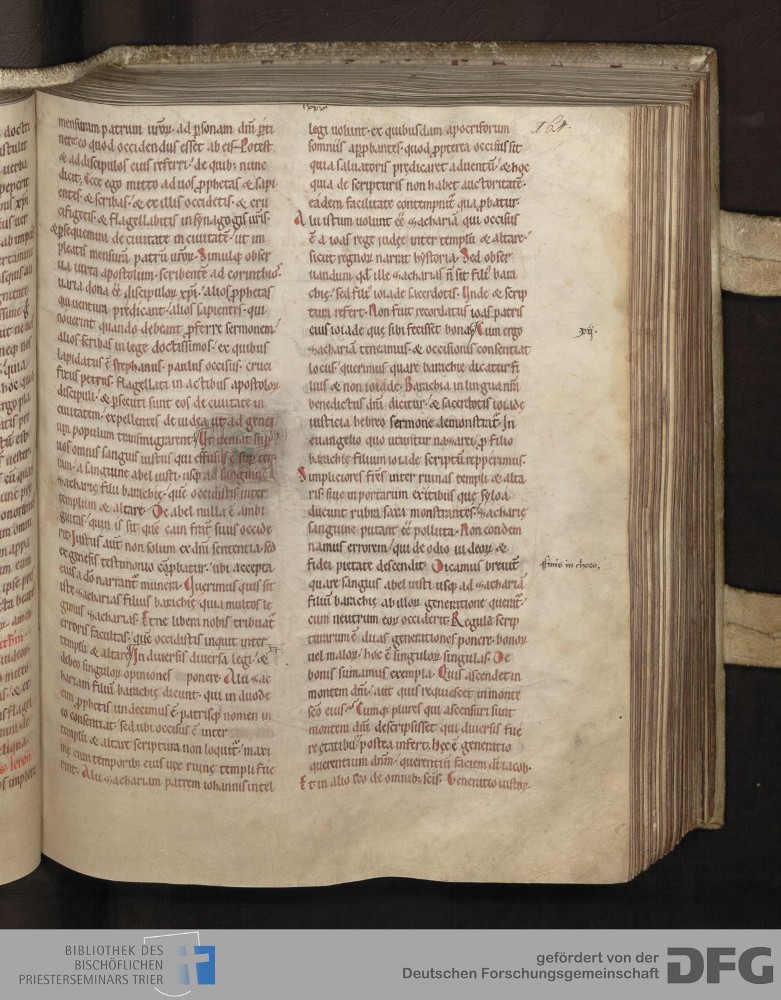 mensuram patrum uroꝝ. ad psonam dni pti
nere. eo quod occidendus esset ab eis. Potest
& ad discipulos eius referri. de quib; nunc
dicit. Ecce ego mitto ad uos pphetas & sapi
entes. & scribas. & ex illis occidetis. & cru
cifigetis. & flagellabitis in synagogis uris.
& psequemini de ciuitate in ciuitatē. ut im
pleatis mensurā patrū uroꝝ. Simulq; obser
ua iuxta apostolum. scribentē ad corinthios
uaria dona eē discipuloꝝ xpi. alios pphetas
qui uenturū predicant. alios sapientes. qui
nouerint quando debeant pferre sermonem.
alios scribas in lege doctissimos. ex quibus
lapidatus ē stephanus. paulus occisus. cruci
fixus petrus. flagellati in actibus apostoloꝝ
discipuli. & psecuti sunt eos de ciuitate in
ciuitatem. expellentes de iudea ut ad genti
um populum transmigrarent. Ut ueniat sup
uos omnis sanguis iustus qui effusus ē sup ter
ram. a sanguine abel iusti. usq; ad sanguinē
zacharię filii barachię. quē occidistis inter
templum & altare. De abel nulla ē ambi
guitas. quin is sit quē cain frat̄ suus occide
rit. Iustus aut̄ non solum ex dni sententia. sed
ex genesis testimonio cōpbatur. ubi accepta
eius a dō narrant̄ munera. Querimus quis sit
iste zacharias filius barachię. quia multos le
gimus zacharias. Et ne libera nobis tribuat̄
erroris facultas. quē occidistis inquit inter
templū & altare. In diuersis diuersa legi. &
debeo singuloꝝ opiniones ponere. Alii zac
hariam filiū barachię dicunt. qui in duode
cim pphetis undecimus ē. patrisq; nomen in
eo consentiat. sed ubi occisus ē inter
templū & altare scriptura non loquit̄. maxi
me cum temporib; eius uix ruinę templi fue
rint. Alii zachariam patrem iohannis intel
legi uolunt. ex quibusdam apocriforum
somniis appbantes. quod ppterea occisus sit
quia saluatoris predicaret aduentū. & hoc
quia de scripturis non habet auctoritatē.
eadem facilitate contempnit̄ qua pbatur.
Alii istum uolunt eē zachariā qui occisus
ē a ioas rege iudęę inter templū & altare.
sicut regnoꝝ narrat hystoria. Sed obser
uandum qd ille zacharias n̄ sit filī bara
chię. sed filī ioiade sacerdotis. Unde & scrip
tura refert. Non fuit recordatus ioas patris
eius ioiade qui sibi fecisset bona. Cum ergo
zachariā teneamus. & occisionis consentiat
locus. querimus quare barachię dicatur fi
lius & non ioiade. Barachia in lingua nr̄a
benedictus dni dicitur. & sacerdotis ioiade
iusticia hebreo sermone demonstrat̄. In
euangelio quo utuntur nazarei. p filio
barachię filium ioiade scriptū repperimus.
Simpliciores frēs inter ruinas templi & alta
ris siue in portarum exitibus quę syloā
ducunt rubra saxa monstrantes. zacharię
sanguine putant eē polluta. Non condem
namus errorem. qui de odio iudeoꝝ &
fidei pietate descendit. Dicamus breuit̄
quare sanguis abel iusti usq; ad zachariā
filiū barachię ab illoꝝ generatione querit̄.
cum neutrum eoꝝ occiderit. Regula scrip
turarum ē duas generationes ponere. bonoꝝ
uel maloꝝ. hoc ē singuloꝝ singulas. De
bonis sumamus exempla. Quis ascendet in
montem dni. aut quis requiescet in monte
scō eius. Cumq; plures qui ascensuri sunt
montem dni descripsisset. qui diuersis fue
re etatibus. postea infert. hęc ē generatio
querentium dnm. querentiū faciem di iacob.
Et in alio loco de omnib; scis. Generatio iustoꝝ
161.
xij
finis in choro.
BIBLIOTHEK DES
BISCHÖFLICHEN
PRIESTERSEMINARS TRIER
gefördert von der
Deutschen Forschungsgemeinschaft
DFG